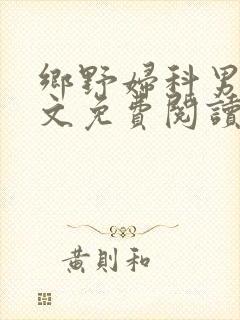 鄉野婦科男
文免費閱讀
黃則和